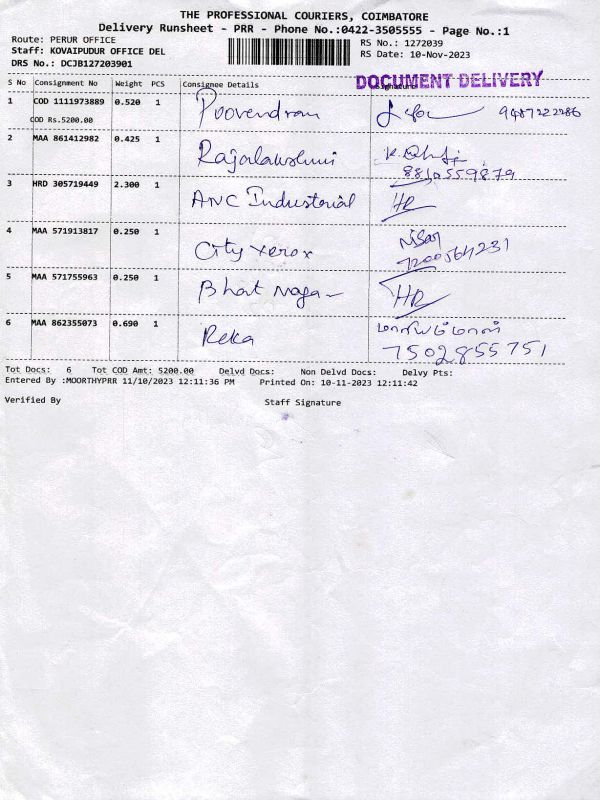 THE PROFESSIONAL COURIERS, COIMBATORE
Delivery Runsheet - PRR - Phone No.:0422-3505555 - Page No.:1
Route: PERUR OFFICE
RS No.: 1272039
Staff: KOVAIPUDUR OFFICE DEL
RS Date: 10-Nov-2023
DRS No.: DCJB127203901
DOCUMENT DELIVERY
S No Consignment No Weight PCS Consignee Details Signature
1 COD 1111973889 0.520 1 Poovendran 9487222286
COD Rs.5200.00
2 MAA 861412982 0.425 1 Rajalakshmi
8810559879
3 HRD 305719449 2.300 1 ANC Industorial HR
4 MAA 571913817 0.250 1 City xerox Nisar
7200564231
5 MAA 571755963 0.250 1 Bhart Nagar HR
6 MAA 862355073 0.690 1 Reka
7502855751
Tot Docs: 6 Tot COD Amt: 5200.00 Delvd Docs: Non Delvd Docs: Delvy Pts:
Entered By :MOORTHYPRR 11/10/2023 12:11:36 PM Printed On: 10-11-2023 12:11:42
Verified By Staff Signature